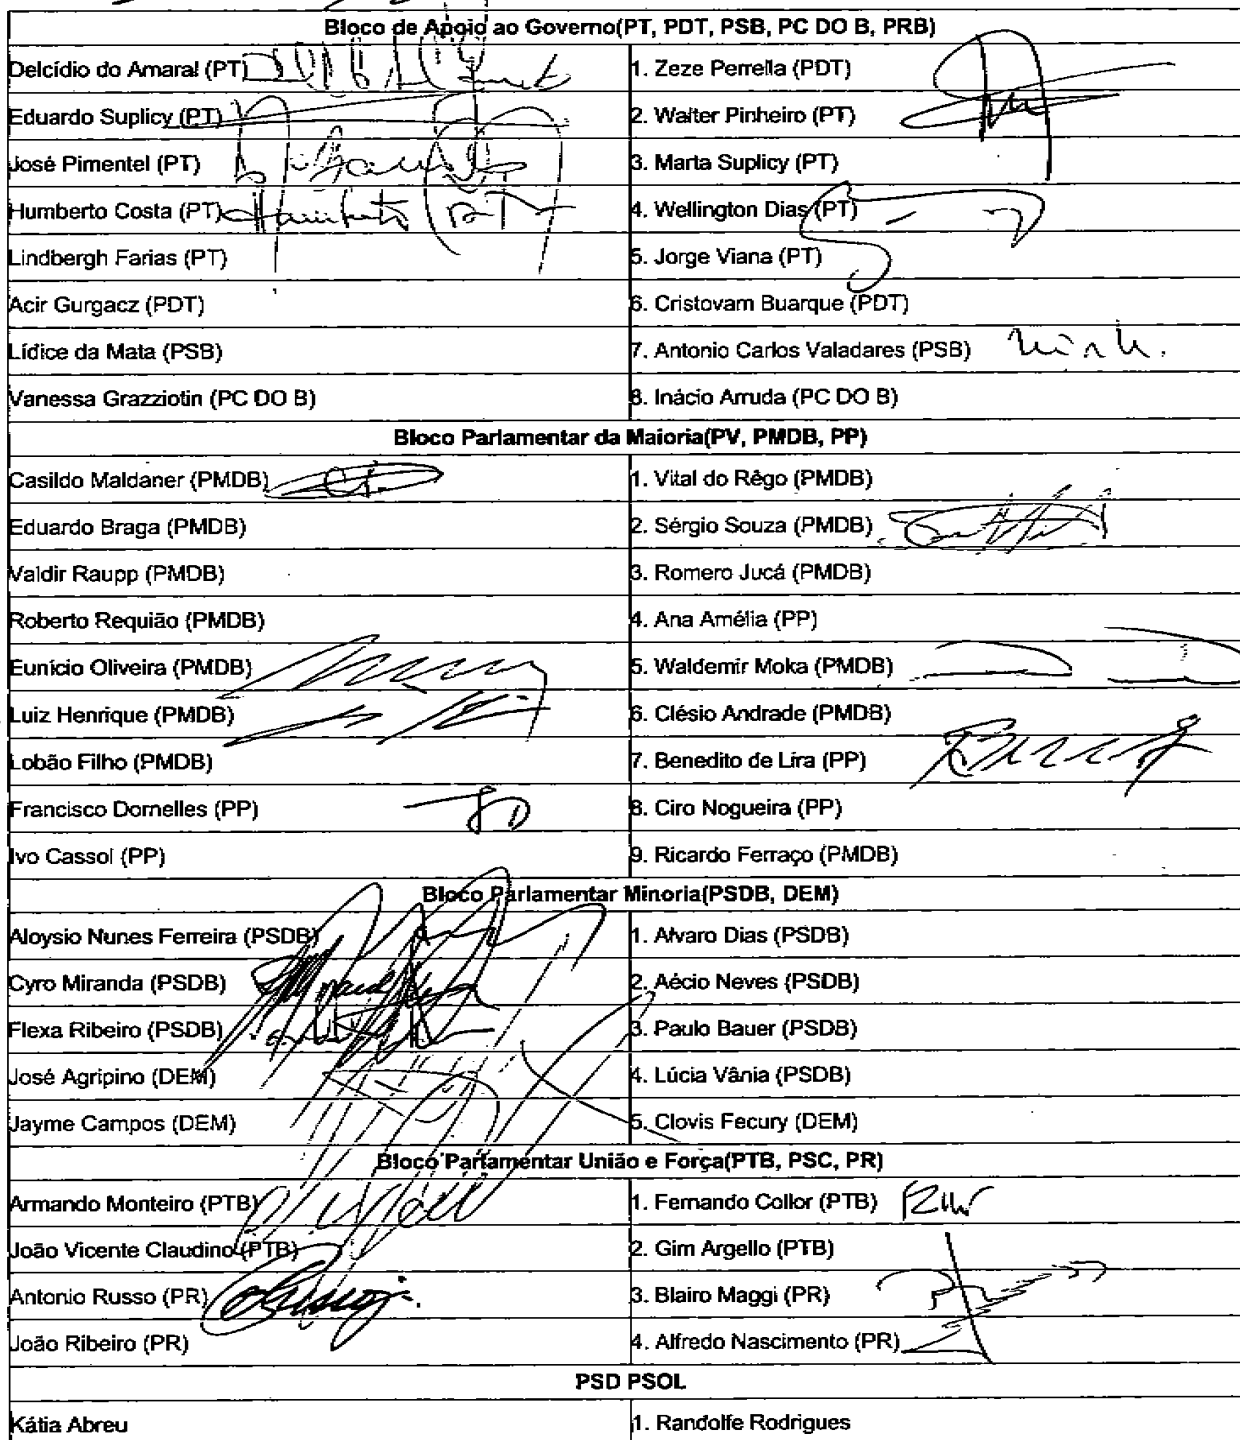 Bloco de Apoio ao Governo(PT, PDT, PSB, PC DO B, PRB)
Delcídio do Amaral (PT) 1. Zeze Perrella (PDT)
Eduardo Suplicy (PT) 2. Walter Pinheiro (PT)
José Pimentel (PT) 3. Marta Suplicy (PT)
Humberto Costa (PT) Humberto (PT 4. Wellington Dias (PT)
Lindbergh Farias (PT) 5. Jorge Viana (PT)
Acir Gurgacz (PDT) 6. Cristovam Buarque (PDT)
Lídice da Mata (PSB) 7. Antonio Carlos Valadares (PSB)
Vanessa Grazziotin (PC DO B) 8. Inácio Arruda (PC DO B)
Bloco Parlamentar da Maioria(PV, PMDB, PP)
Casildo Maldaner (PMDB) 1. Vital do Rêgo (PMDB)
Eduardo Braga (PMDB) 2. Sérgio Souza (PMDB)
Valdir Raupp (PMDB) 3. Romero Jucá (PMDB)
Roberto Requião (PMDB) 4. Ana Amélia (PP)
Eunício Oliveira (PMDB) 5. Waldemir Moka (PMDB)
Luiz Henrique (PMDB) 6. Clésio Andrade (PMDB)
Lobão Filho (PMDB) 7. Benedito de Lira (PP)
Francisco Dornelles (PP) 8. Ciro Nogueira (PP)
Ivo Cassol (PP) 9. Ricardo Ferraço (PMDB)
Bloco Parlamentar Minoria(PSDB, DEM)
Aloysio Nunes Ferreira (PSDB) 1. Alvaro Dias (PSDB)
Cyro Miranda (PSDB) 2. Aécio Neves (PSDB)
Flexa Ribeiro (PSDB) 3. Paulo Bauer (PSDB)
José Agripino (DEM) 4. Lúcia Vânia (PSDB)
Jayme Campos (DEM) 5. Clovis Fecury (DEM)
Bloco Parlamentar União e Força(PTB, PSC, PR)
Armando Monteiro (PTB) 1. Fernando Collor (PTB)
João Vicente Claudino (PTB) 2. Gim Argello (PTB)
Antonio Russo (PR) 3. Blairo Maggi (PR)
João Ribeiro (PR) 4. Alfredo Nascimento (PR)
PSD PSOL
Kátia Abreu 1. Randolfe Rodrigues